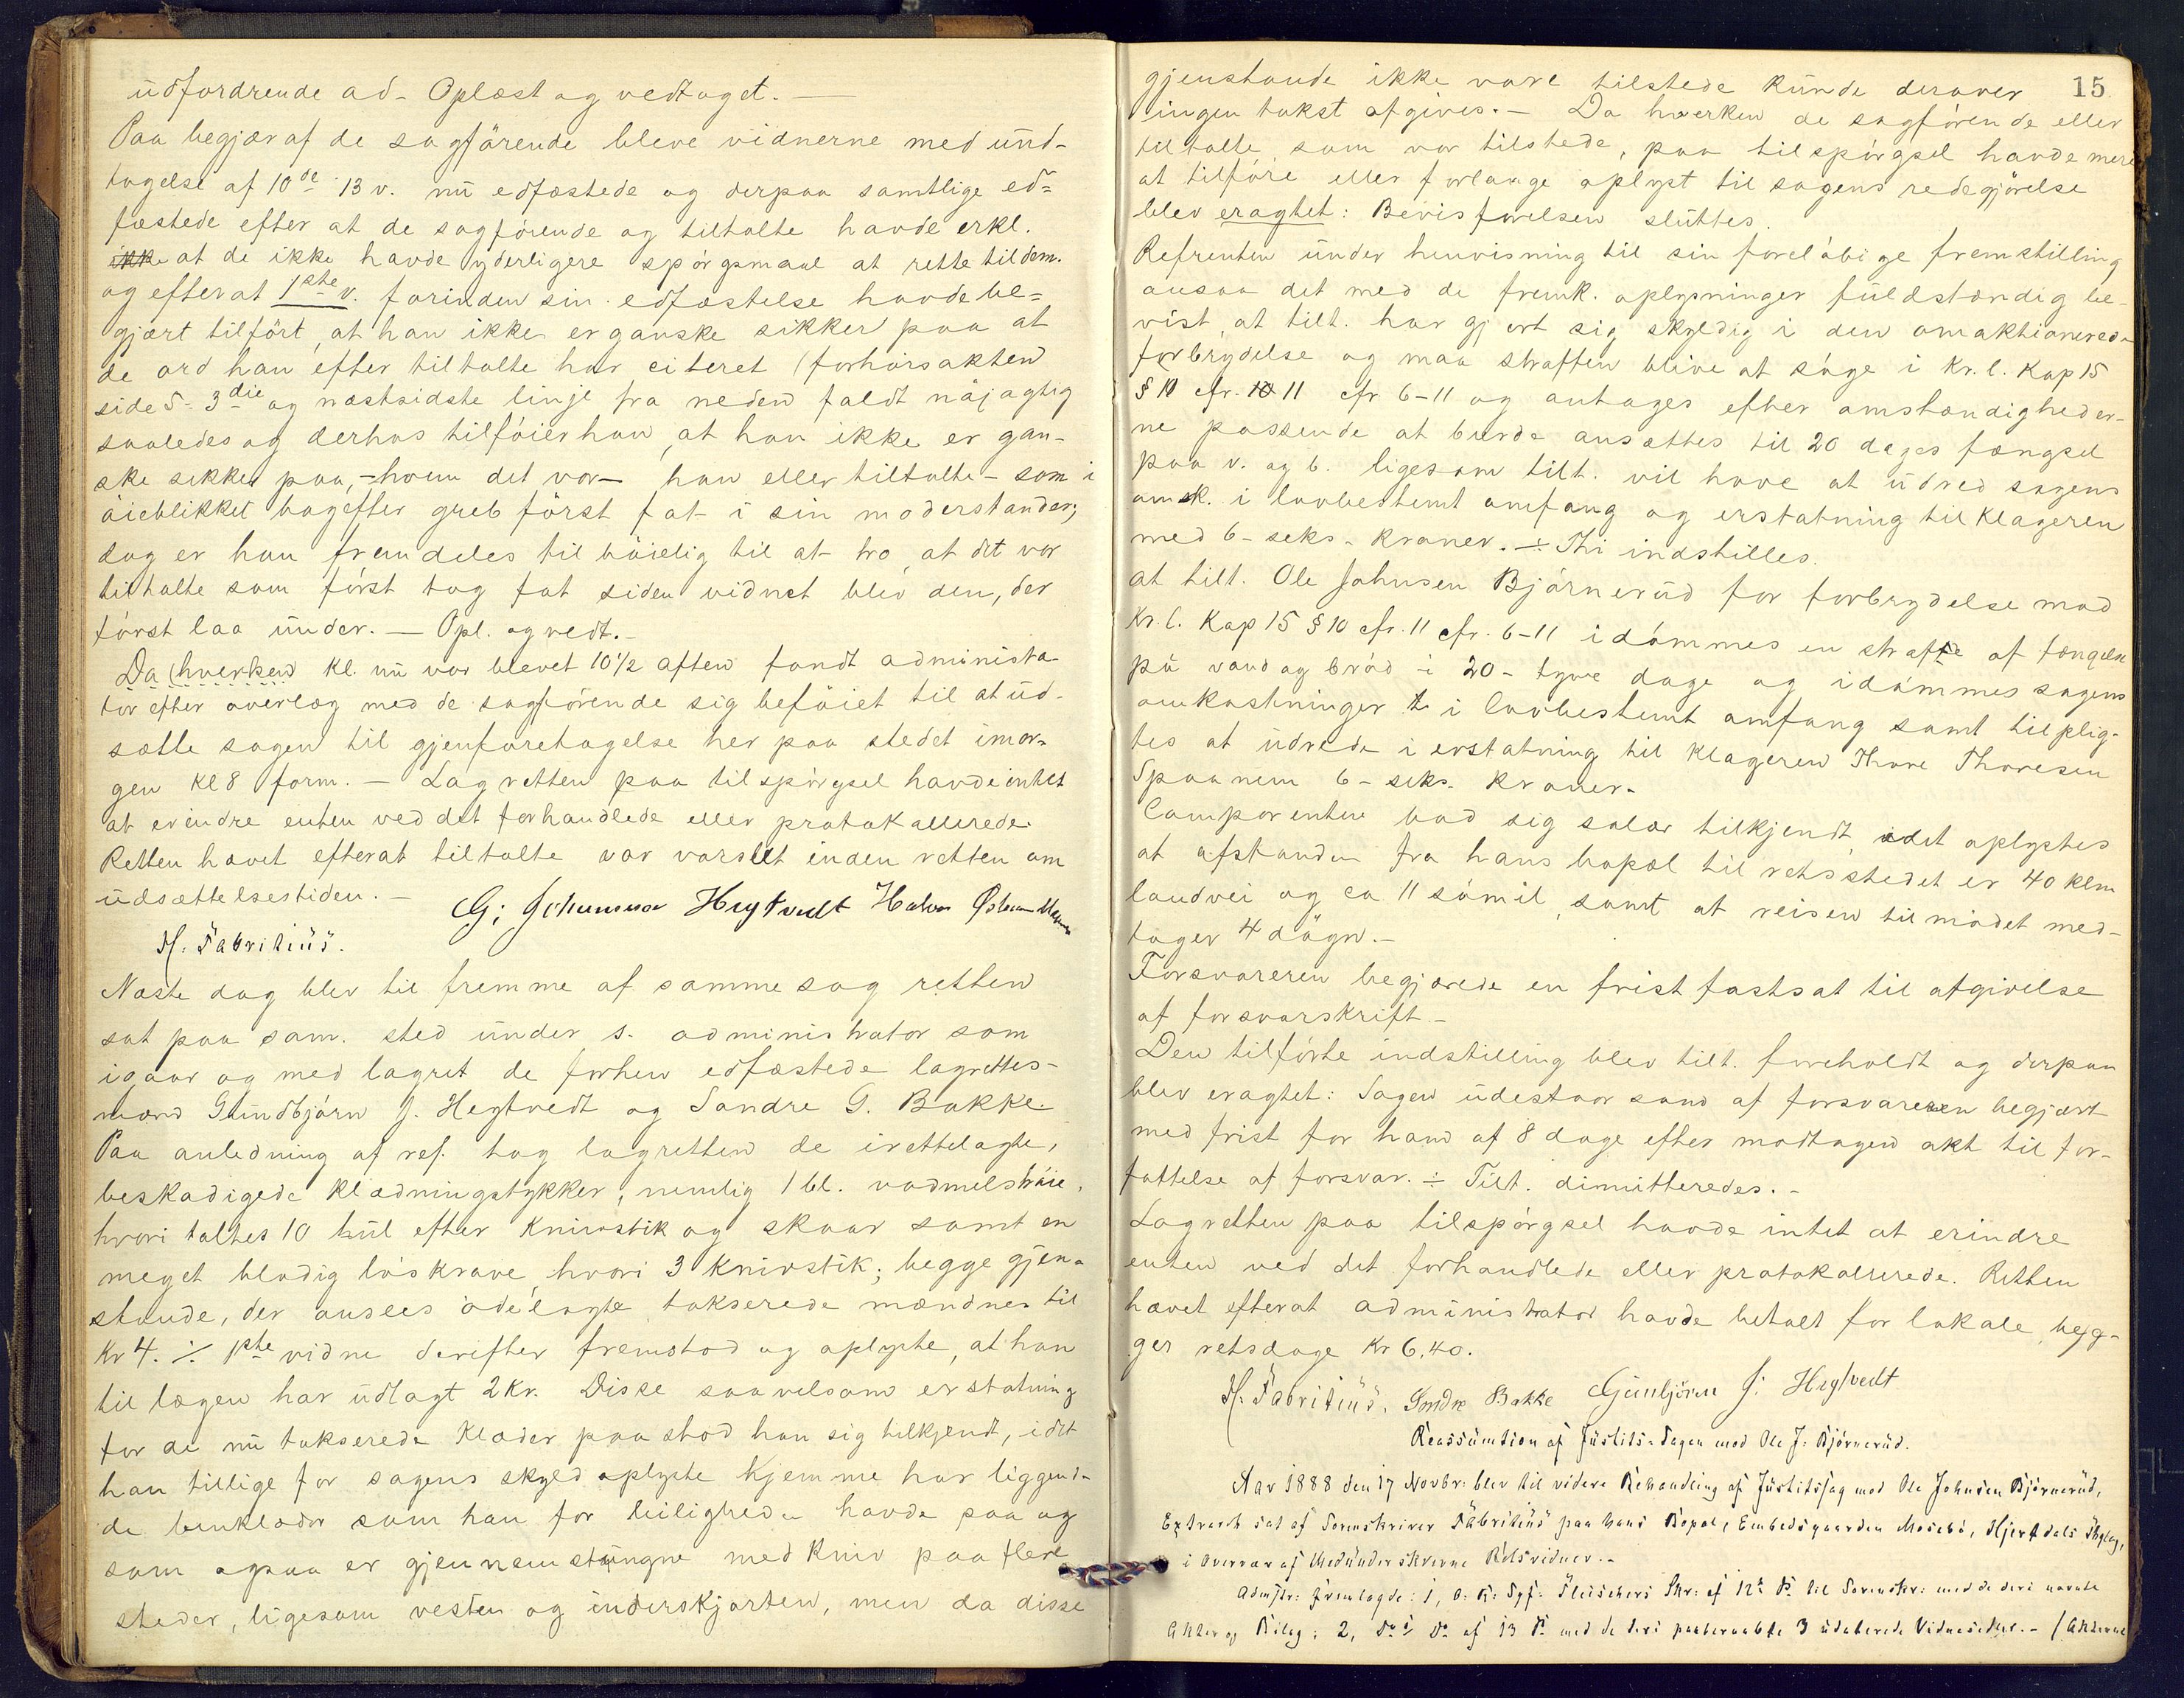 udfordrende ad- Oplæst og vedtaget. —
Paa begjær af de sagförende bleve vidnerne med und-
tagelse af 10de 13 v. nu edfæstede og derpaa samtlige ed=
fæstede efter at de sagförende og tiltalte havde erkl.
ikke at de ikke havde yderligere spörgsmaal at rette til dem.
og efterat 1ste v. forinden sin edfæstelse havde be=
gjært tilfört, at han ikke er ganske sikker paa at
de ord han efter tiltalte har citeret (forhörsakten
side 5- 3die og næstsidste linje fra neden faldt nöjagtig
saaledes og derhos tilföier han, at han ikke er gan-
ske sikker paa, - hvem det var - han eller tiltalte - som i
öieblikket bagefter greb först fat i sin moderstander;
dog er han fremdeles til böielig til at tro, at det var
tiltalte som först tog fat siden vidnet blev den, der
först laa under. — Opl. og vedt. -
Da (hverken kl. nu var blevet 10½ aften fandt administra
tor efter overlæg med de sagförende sig beföiet til at ud-
sætte sagen til gjenforetagelse her paa stedet imor-
gen kl 8 form. — Lagretten paa tilspörgsel havde intet
at erindre enten ved det forhandlede eller protokallerede.
Retten hævet efterat tiltalte var varslet inden retten om
udsættelsestiden. -
G: J Hegtvedt
H: Fabritius.
Næste dag blev til fremme af samme sag retten
sat paa sam. sted under s. administrator som
igaar og med lagret de forhen edfæstede lagrettes-
mænd Gundbjörn J. Hegtvedt og Sandre G. Bakke.
Paa anledning af ref. tog lagretten de irettelagte,
beskadigede klædningstykker, nemlig 1 bl. vadmelströie,
hvori taltes 10 hul efter knivstik og skaar samt en
meget blodig löskrave, hvori 3 knivstik; begge gjen-
stande, der ansees ödelagte takserede mændnes til
Kr 4. ÷ 1ste vidne derefter fremstod og oplyste, at han
til lægen har udlagt 2 Kr. Disse saavelsom erstatning
for de nu takserede Klæder paastod han sig tilkjendt, idet
han tillige for sagens skyld oplyste hjemme har liggend-
de benklæder som han for leiligheden havde paa og
som ogsaa er gjennemstungne med kniv paa flere
steder, ligesom vesten og underskjorten, men da disse
15
gjenstande ikke vare tilstede kunde derover
ingen takst afgives. — Da hverken de sagförende eller
tiltalte, som var tilstede, paa tilspörgsel havde mere
at tilföre eller forlange oplyst til sagens redegjörelse
blev eragtet: Bevisförelsen sluttes.
Refrenten under henvisning til sin forelöbige fremstilling
ansaa det med de fremk. oplysninger fuldstændig be-
vist, at tilt. har gjort sig skyldig i den omaktionered-
forbrydelse og maa straffen blive at söge i Kr. l. Kap 15
§ 10 cfr. 10 11 cfr 6-11 og antages efter omstændigheder-
ne passende at burde ansættes til 20 dages fængsel
paa v. og b. ligesom tilt. vil have at udred sagens
omk. i lovbestemt omfang og erstatning til Klageren
med 6 - seks - kroner. ÷ Thi indstilles.
at tilt. Ole Johnsen Björnerud for forbrydelse mod
Kr. l. Kap 15 § 10 cfr. 11 cfr. 6-11 idömmes en straffe af fængsle
på vand og bröd i 20 - tyve dage og idömmes sagens
omkostninger i lovbestemt omfang samt tilplig-
tes at udrede i erstatning til klageren Thore Thoresen
Spaanem 6 - seks. kroner.
Comparenten bad sig salær tilkjendt, idet oplystes
at afstanden fra hans bopæl til retsstedet er 40 klm
landvei og ca 11 sömil, samt at reisen til mödet med-
tager 4 dögn. -
Forsvareren begjærede en frist fastsat til afgivelse
af forsvarskrift. -
Den tilförte indstilling blev tilt. foreholdt og derpaa
blev eragtet: Sagen udestaar som af forsvareren begjært
med frist for ham af 8 dage efter modtagen akt til for-
fattelse af forsvar. ÷ Tilt. dimitteredes. -
Lagretten paa tilspörgsel havde intet at erindre
enten ved det forhandlede eller protokallerede. Retten
hævet efterat administrator havde betalt for lokale beg-
ges retsdage Kr 6,40.
H: Fabritius. Sondre Bakke Gunbjörn J: Hegtvedt
Reassumtion af Justits-Sagen mod Ole J: Björnerud.
Aar 1888 den 17 Novbr: blev til videre Behandling af Justitssag mod Ole Johnsen Björnerud,
Extraret sat af Sorenskriver Fabritius paa hans Bopæl, Embedsgaarden Mosebö, Hjertdals Thglag,
i Overvær af Medunderskrevne Retsvidner. -
Admstr: fremlagde: 1, O: R: Sgf: Fleischers Skr: af 12te ds. til Sorenskr: med de deri nævnte
Akter og Bilag: 2, Do i Do af 13 ds. med de deri paaberaabte 3 udaterede Vidnesedler. - (Akterne